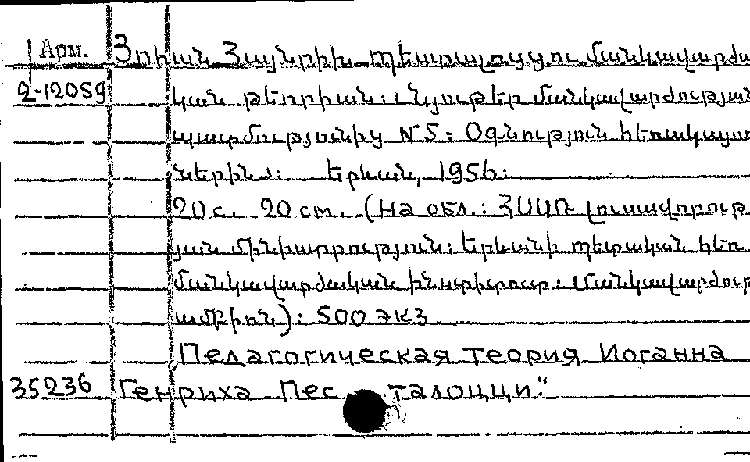 Арм. Յոհան Հայնրիխ Պեստալոցցու մանկավարժա
2-12059 կան թեորիան: Նյութեր մանկավարժության
պատմությունից N 5: Օգնություն հեռակայո
ներին: Երևան, 1956.
20 с. 20 см. (На обл.: ՀՍՍՌ լուսավորութ
յան մինիստրություն: Երևանի պետական հեռ.
մանկավարժական ինստիտուտ: Մանկավարժութ
ամբիոն): 500 экз
Педагогическая теория Иоганна
35236 Генриха Пес талоцци."